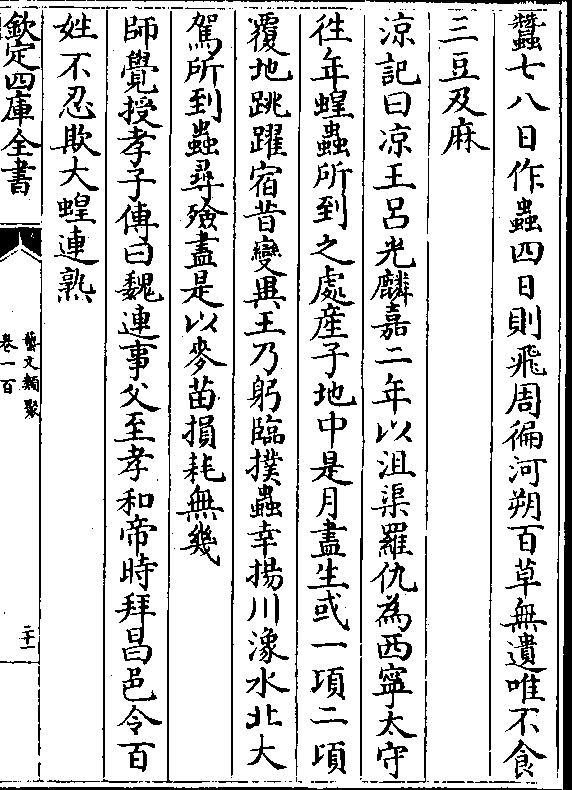 蠶七八日作蟲四日則飛周徧河朔百草無遺唯不食
三豆及麻
凉記曰凉王呂光麟嘉二年以沮渠羅仇為西寧太守
徃年蝗蟲所到之處産子地中是月盡生或一項二項
覆地跳躍宿昔變異王乃躬臨撲蟲幸揚川湪水北大
駕所到蟲尋殮盡是以麥苗損耗無幾
師覺授孝子傳曰魏連事父至孝和帝時拜昌邑令百
姓不忍欺大蝗連熟
欽定四庫全書
藝文類聚
卷一百
二十一